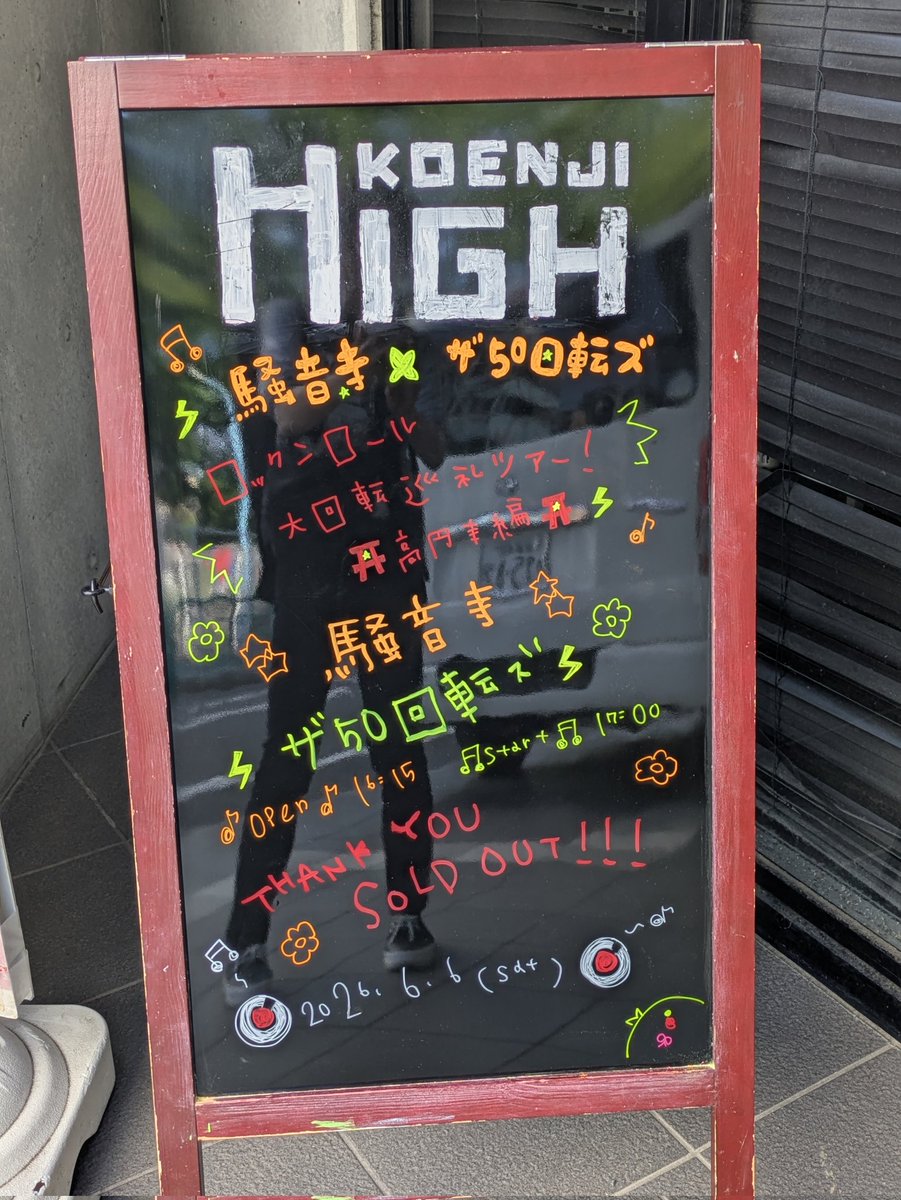 KOENJI
HIGH
騒音寺 × ザ50回転ズ
ロックンロール
大回転巡礼ツアー!
高円寺編
騒音寺
ザ50回転ズ
open 16:15 start 17:00
THANK YOU
SOLD OUT!!!
2026.6.6 (sat)